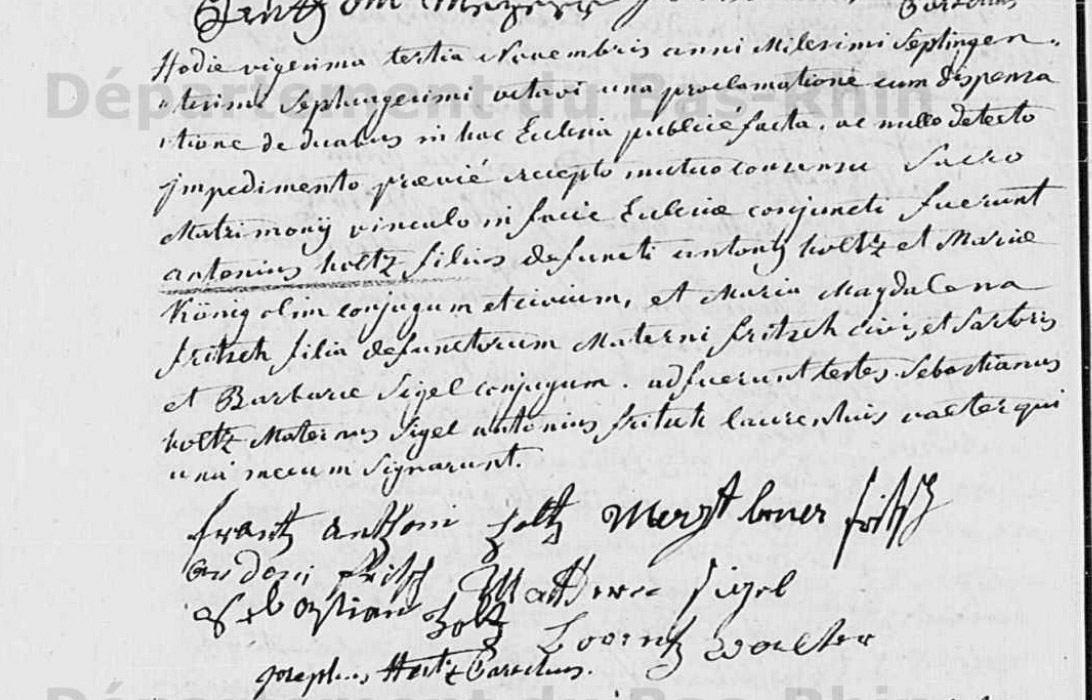 Hodie vigesima tertia Novembris anni Milesimi Septingen-
tesimi Septuagesimi octavi una proclamatione cum dispensa
tione de duabus in hac Ecclesia publicé facta, ac nullo detecto
jmpedimento prævié recepto mutuo consensu Sacro
Matrimonÿ vinculo in facie Ecclesiæ conjuncti fuerunt
antonius holtz filius defuncti antonÿ holtz et Mariæ
König olim conjugum et civium, et Maria Magdalena
fritsch filia defunctorum Materni fritsch civis, et Sartoris
et Barbaræ Sigel conjugum. adfuerunt testes Sebastianus
holtz Maternus Sigel antonius fritsch laurentius valter qui
una mecum Signarunt.
frantz anthoni holtz
andoni fritsch Matterne sigel
Sebastian holtz Lorentz walter
josephus Parochus.
Département du Bas-Rhin
Département du Bas-Rhin